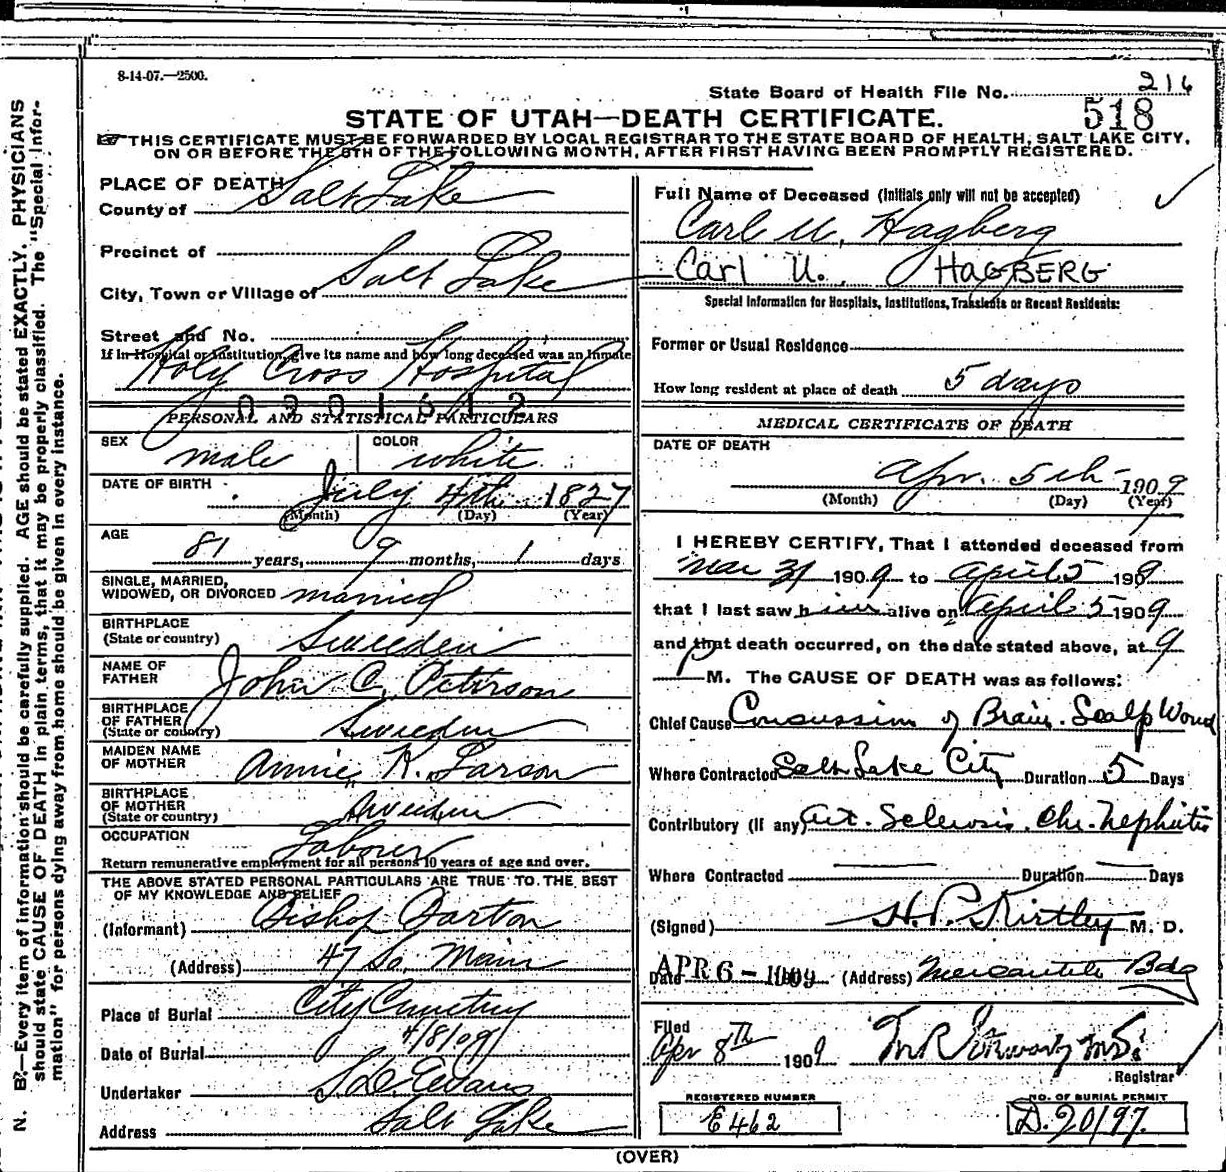 8-14-07.—2500.
State Board of Health File No. 216
518
STATE OF UTAH—DEATH CERTIFICATE.
THIS CERTIFICATE MUST BE FORWARDED BY LOCAL REGISTRAR TO THE STATE BOARD OF HEALTH, SALT LAKE CITY,
ON OR BEFORE THE 5TH OF THE FOLLOWING MONTH, AFTER FIRST HAVING BEEN PROMPTLY REGISTERED.
N. B.—Every item of information should be carefully supplied. AGE should be stated EXACTLY. PHYSICIANS
should state CAUSE OF DEATH in plain terms, that it may be properly classified. The "Special Infor-
mation" for persons dying away from home should be given in every instance.
PLACE OF DEATH
County of Salt Lake
Precinct of
City, Town or Village of Salt Lake
Street and No.
If in Hospital or Institution, give its name and how long deceased was an Inmate
Holy Cross Hospital
PERSONAL AND STATISTICAL PARTICULARS
SEX male COLOR white
DATE OF BIRTH July 4th 1827
(Month) (Day) (Year)
AGE 81 years, 9 months, 1 days
SINGLE, MARRIED,
WIDOWED, OR DIVORCED married
BIRTHPLACE
(State or country) Sweeden
NAME OF
FATHER John C. Peterson
BIRTHPLACE
OF FATHER
(State or country) Sweeden
MAIDEN NAME
OF MOTHER Annie K. Larson
BIRTHPLACE
OF MOTHER
(State or country) Sweeden
OCCUPATION Laborer
Return remunerative employment for all persons 10 years of age and over.
THE ABOVE STATED PERSONAL PARTICULARS ARE TRUE TO THE BEST
OF MY KNOWLEDGE AND BELIEF
(Informant) Bishop Barton
(Address) 47 So. Main
Place of Burial City Cemetery
Date of Burial 4/8/09
Undertaker S. D. Evans
Address Salt Lake
Full Name of Deceased (Initials only will not be accepted)
Carl U. Hagberg
Carl U. HAGBERG
Special Information for Hospitals, Institutions, Transients or Recent Residents:
Former or Usual Residence
How long resident at place of death 5 days
MEDICAL CERTIFICATE OF DEATH
DATE OF DEATH
Apr. 5th 1909
(Month) (Day) (Year)
I HEREBY CERTIFY, That I attended deceased from
Mar 31 1909 to April 5 1909
that I last saw him alive on April 5 1909
and that death occurred, on the date stated above, at 9
P M. The CAUSE OF DEATH was as follows:
Chief Cause Concussion of Brain. Scalp Wound
Where Contracted Salt Lake City Duration 5 Days
Contributory (If any) Art. Sclerosis. Chr. Nephritis
Where Contracted Duration Days
(Signed) H. P. Kirtley M. D.
Date APR 6 - 1909 (Address) Mercantile Bdg
Filed
Apr 8TH 1909
Registrar
REGISTERED NUMBER
E462
NO. OF BURIAL PERMIT
D.20197.
(OVER)